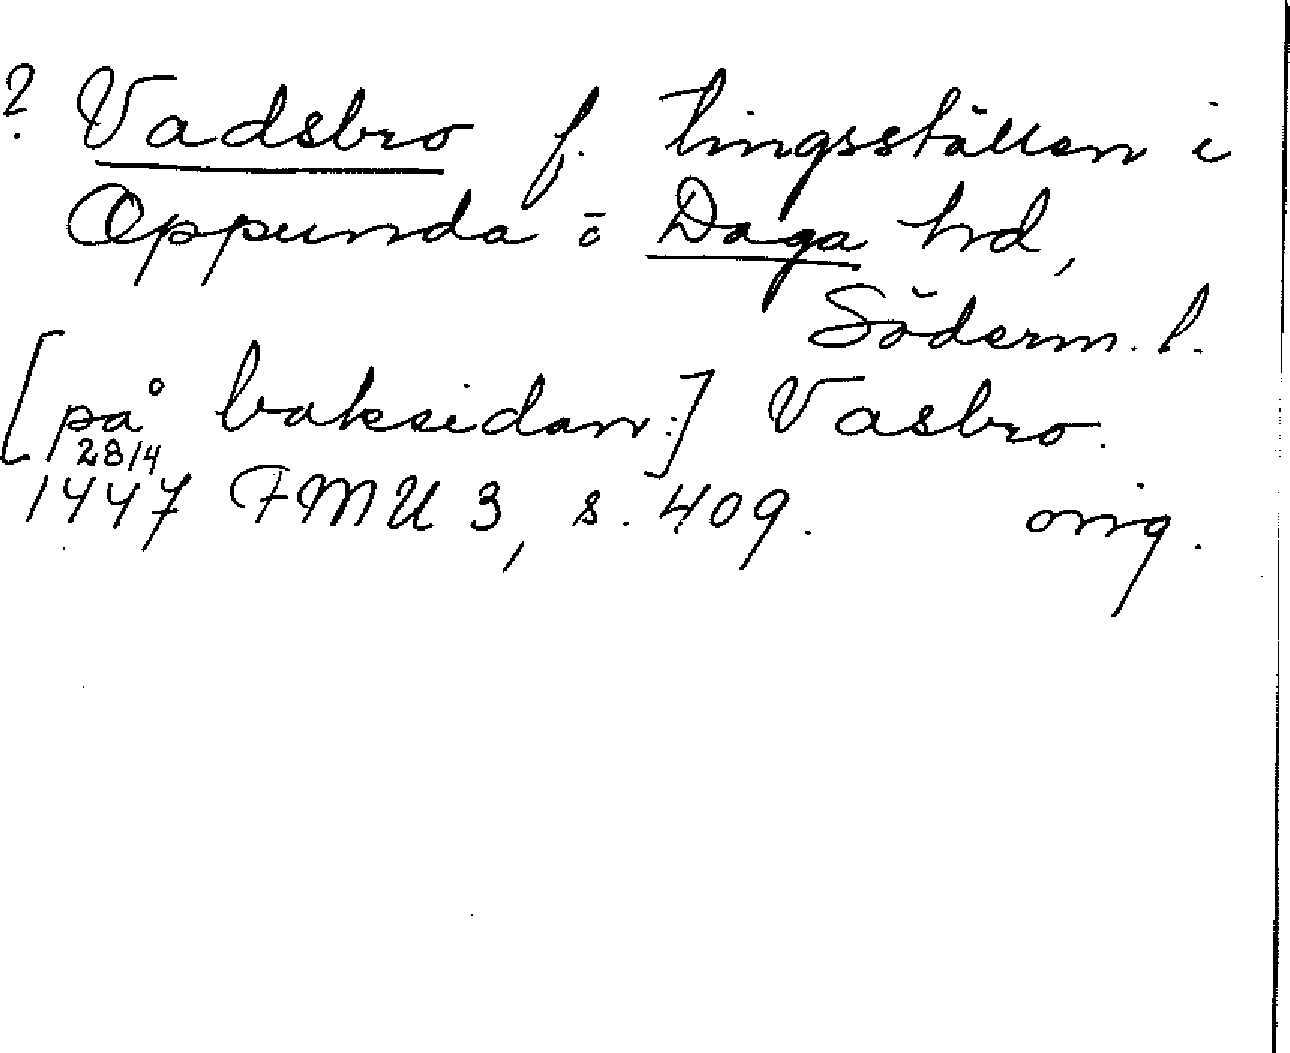 ? Vadsbro f. tingsställen i
Oppunda o Daga hd,
Söderm. l.
[på baksidan:] Vasbro.
28/4
1447 FMU 3, s. 409. orig.